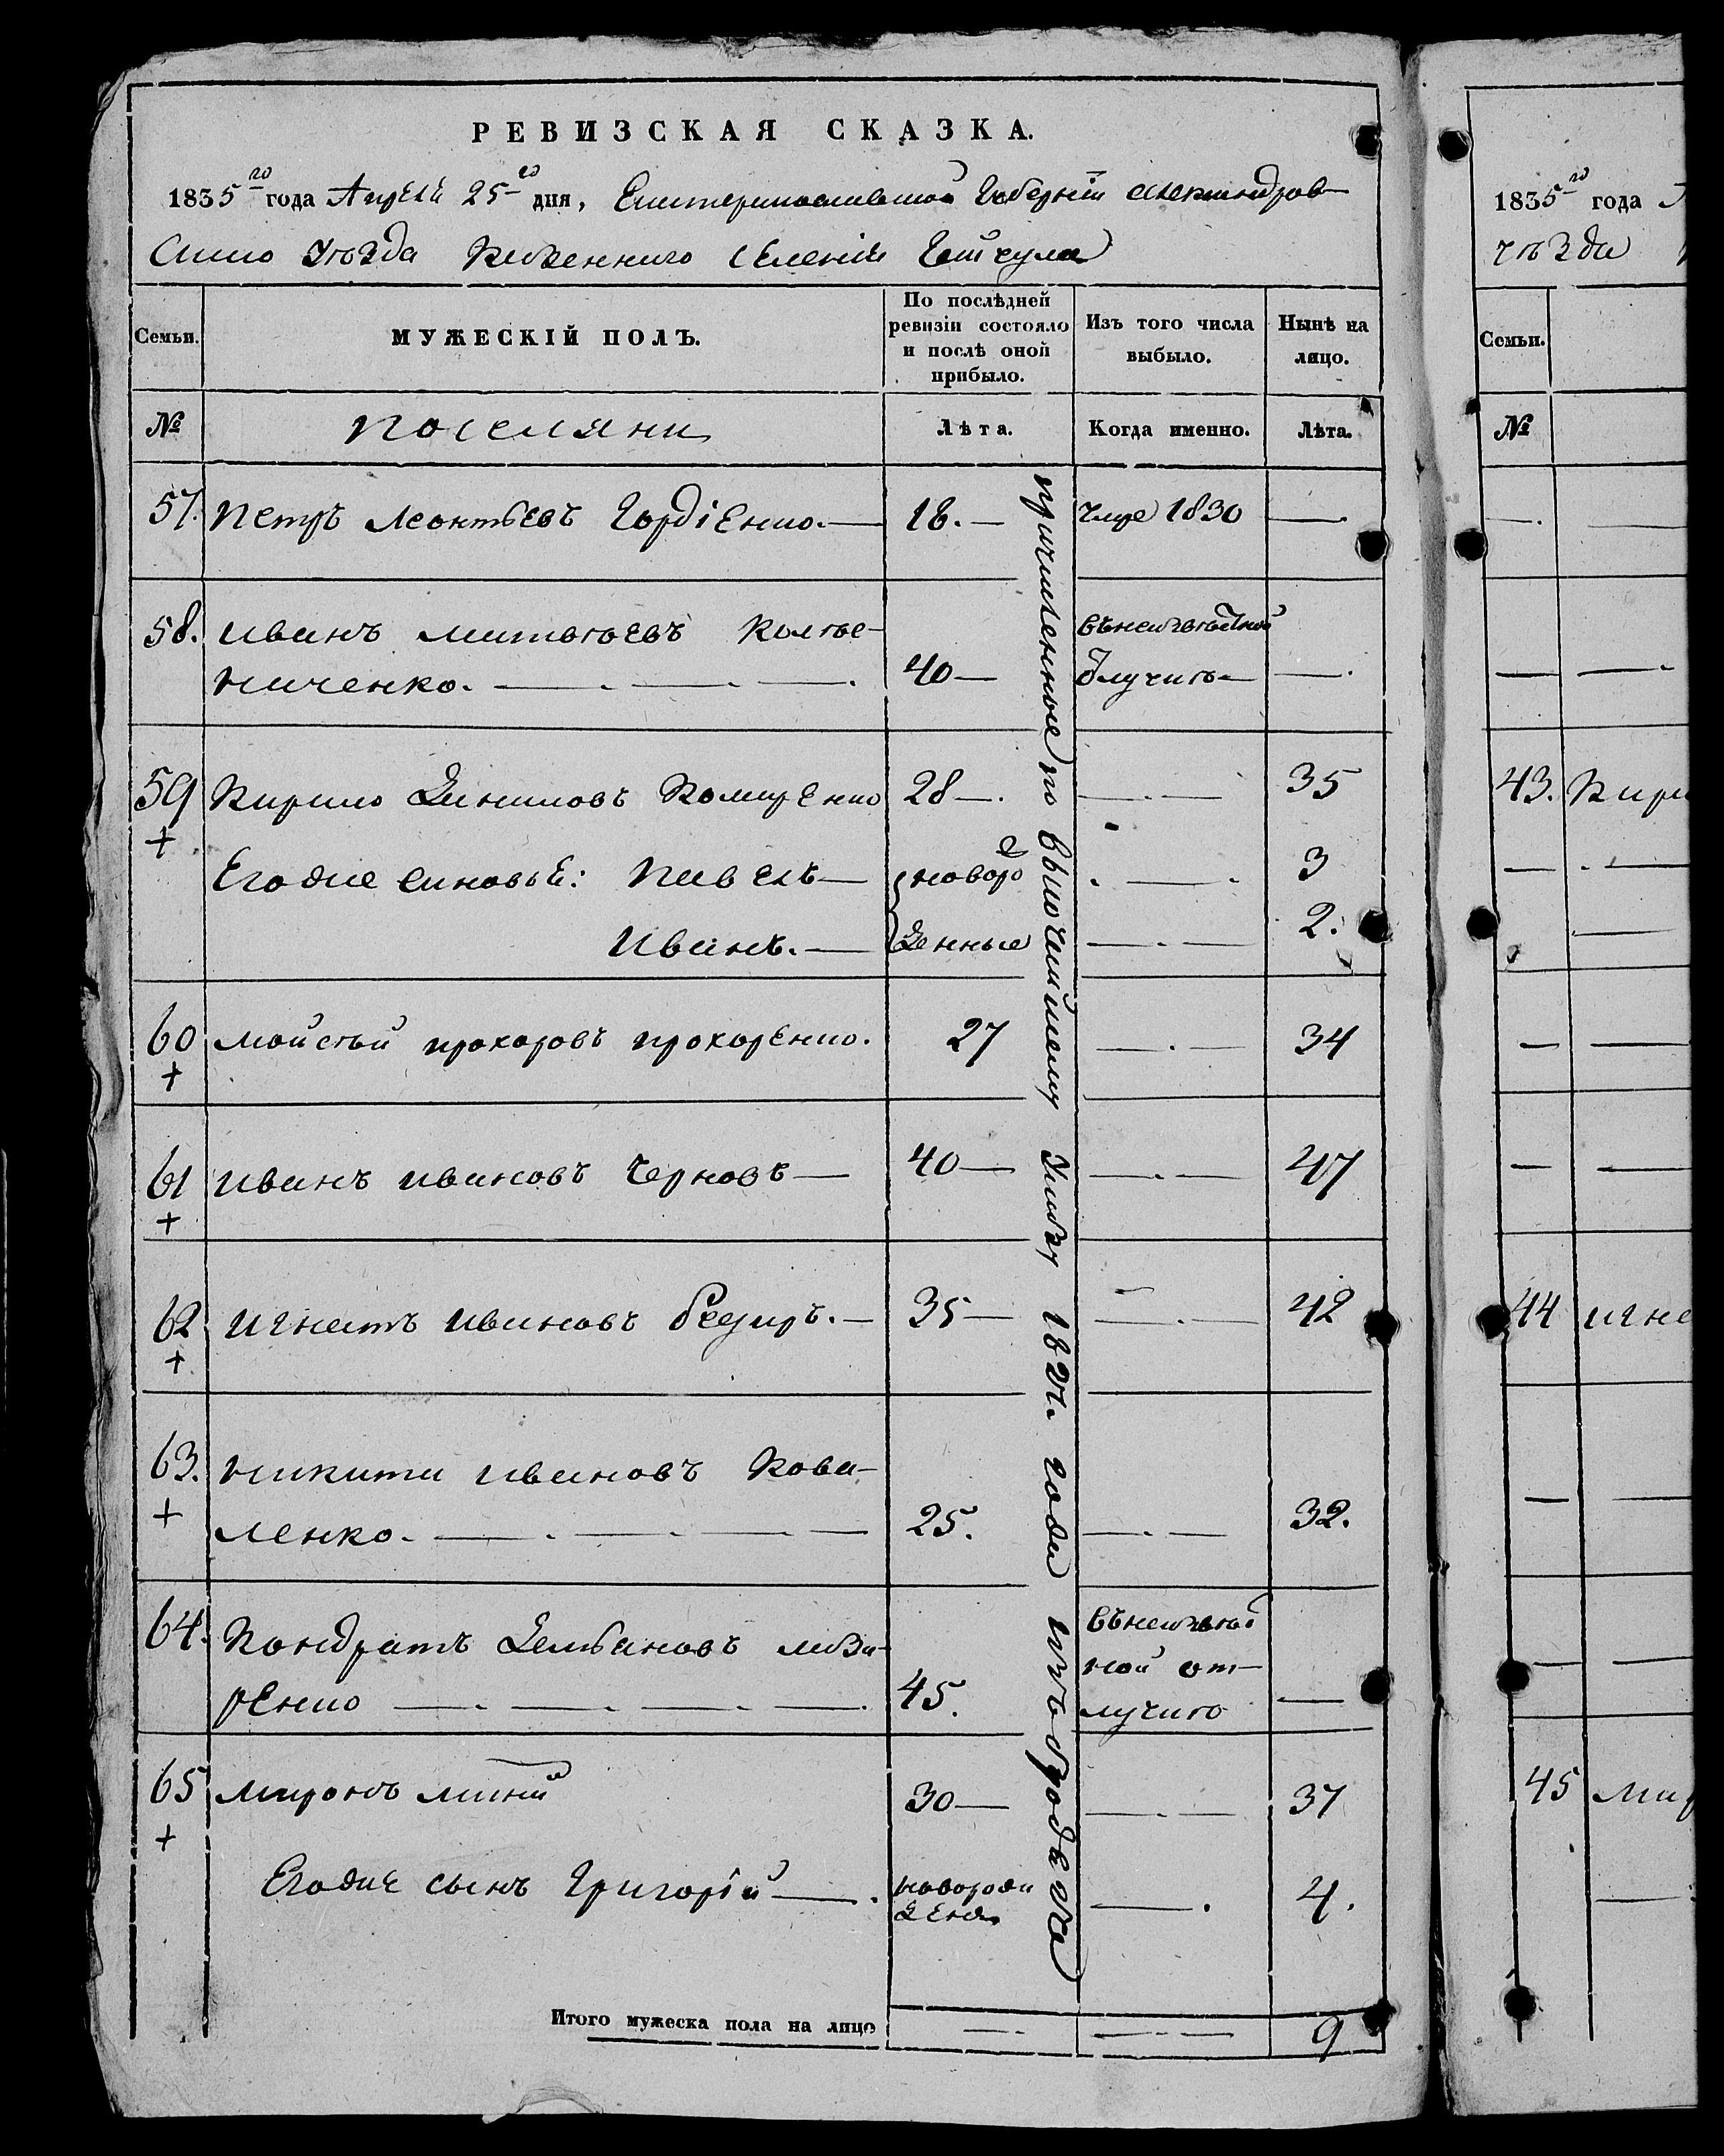 РЕВИЗСКАЯ СКАЗКА.
1835го года Апреля 25го дня, Екатеринославской Губерніи Александров-
скаго уѣзда Казеннаго селенія Гайчула
Семьи.
МУЖЕСКІЙ ПОЛЪ.
По послѣдней ревизіи состояло и послѣ оной прибыло.
Изъ того числа выбыло.
Нынѣ на лицо.
№
поселяни
Лѣта.
Когда именно.
Лѣта.
57. Петръ Леонтьевъ Гордіенко. — 18. — умре 1830 — .
58. Иванъ Матвѣевъ
ниченко. — . — . — . 40 —
вънеизвѣстной
отлучкѣ — — .
59 Кирило Даниловъ Комаренко 28 — . — . — 35
+
Егоже синовья: Павелъ — новоро . — . 3
Иванъ. — жденные — . — 2.
60 Мойсѣй Прохоровъ Прохоренко. 27 — . — 34
+
61 Иванъ Ивановъ Черновъ — 40 — — . — 47
+
62 Игнатъ Ивановъ 35 — — . — 42
+
63. Никита Ивановъ Кова-
+
ленко. — . — . — — 25. — . — 32.
64. Кондратъ Демьяновъ Лаза-
ренко — . — . — . — . 45.
вънеизвѣст
ной от-
лучкѣ —
65 Миронъ 30 — — . — 37
+
Егоже сынъ Григорій — . новорож
ден — . 4.
причисленные по высочайшему указу 1827. года изъ бродягъ
Итого мужеска пола на лицо — . — . — 9
1835го года
уѣзда
Семьи.
№
43. Кири
44 Игна
45 Мир